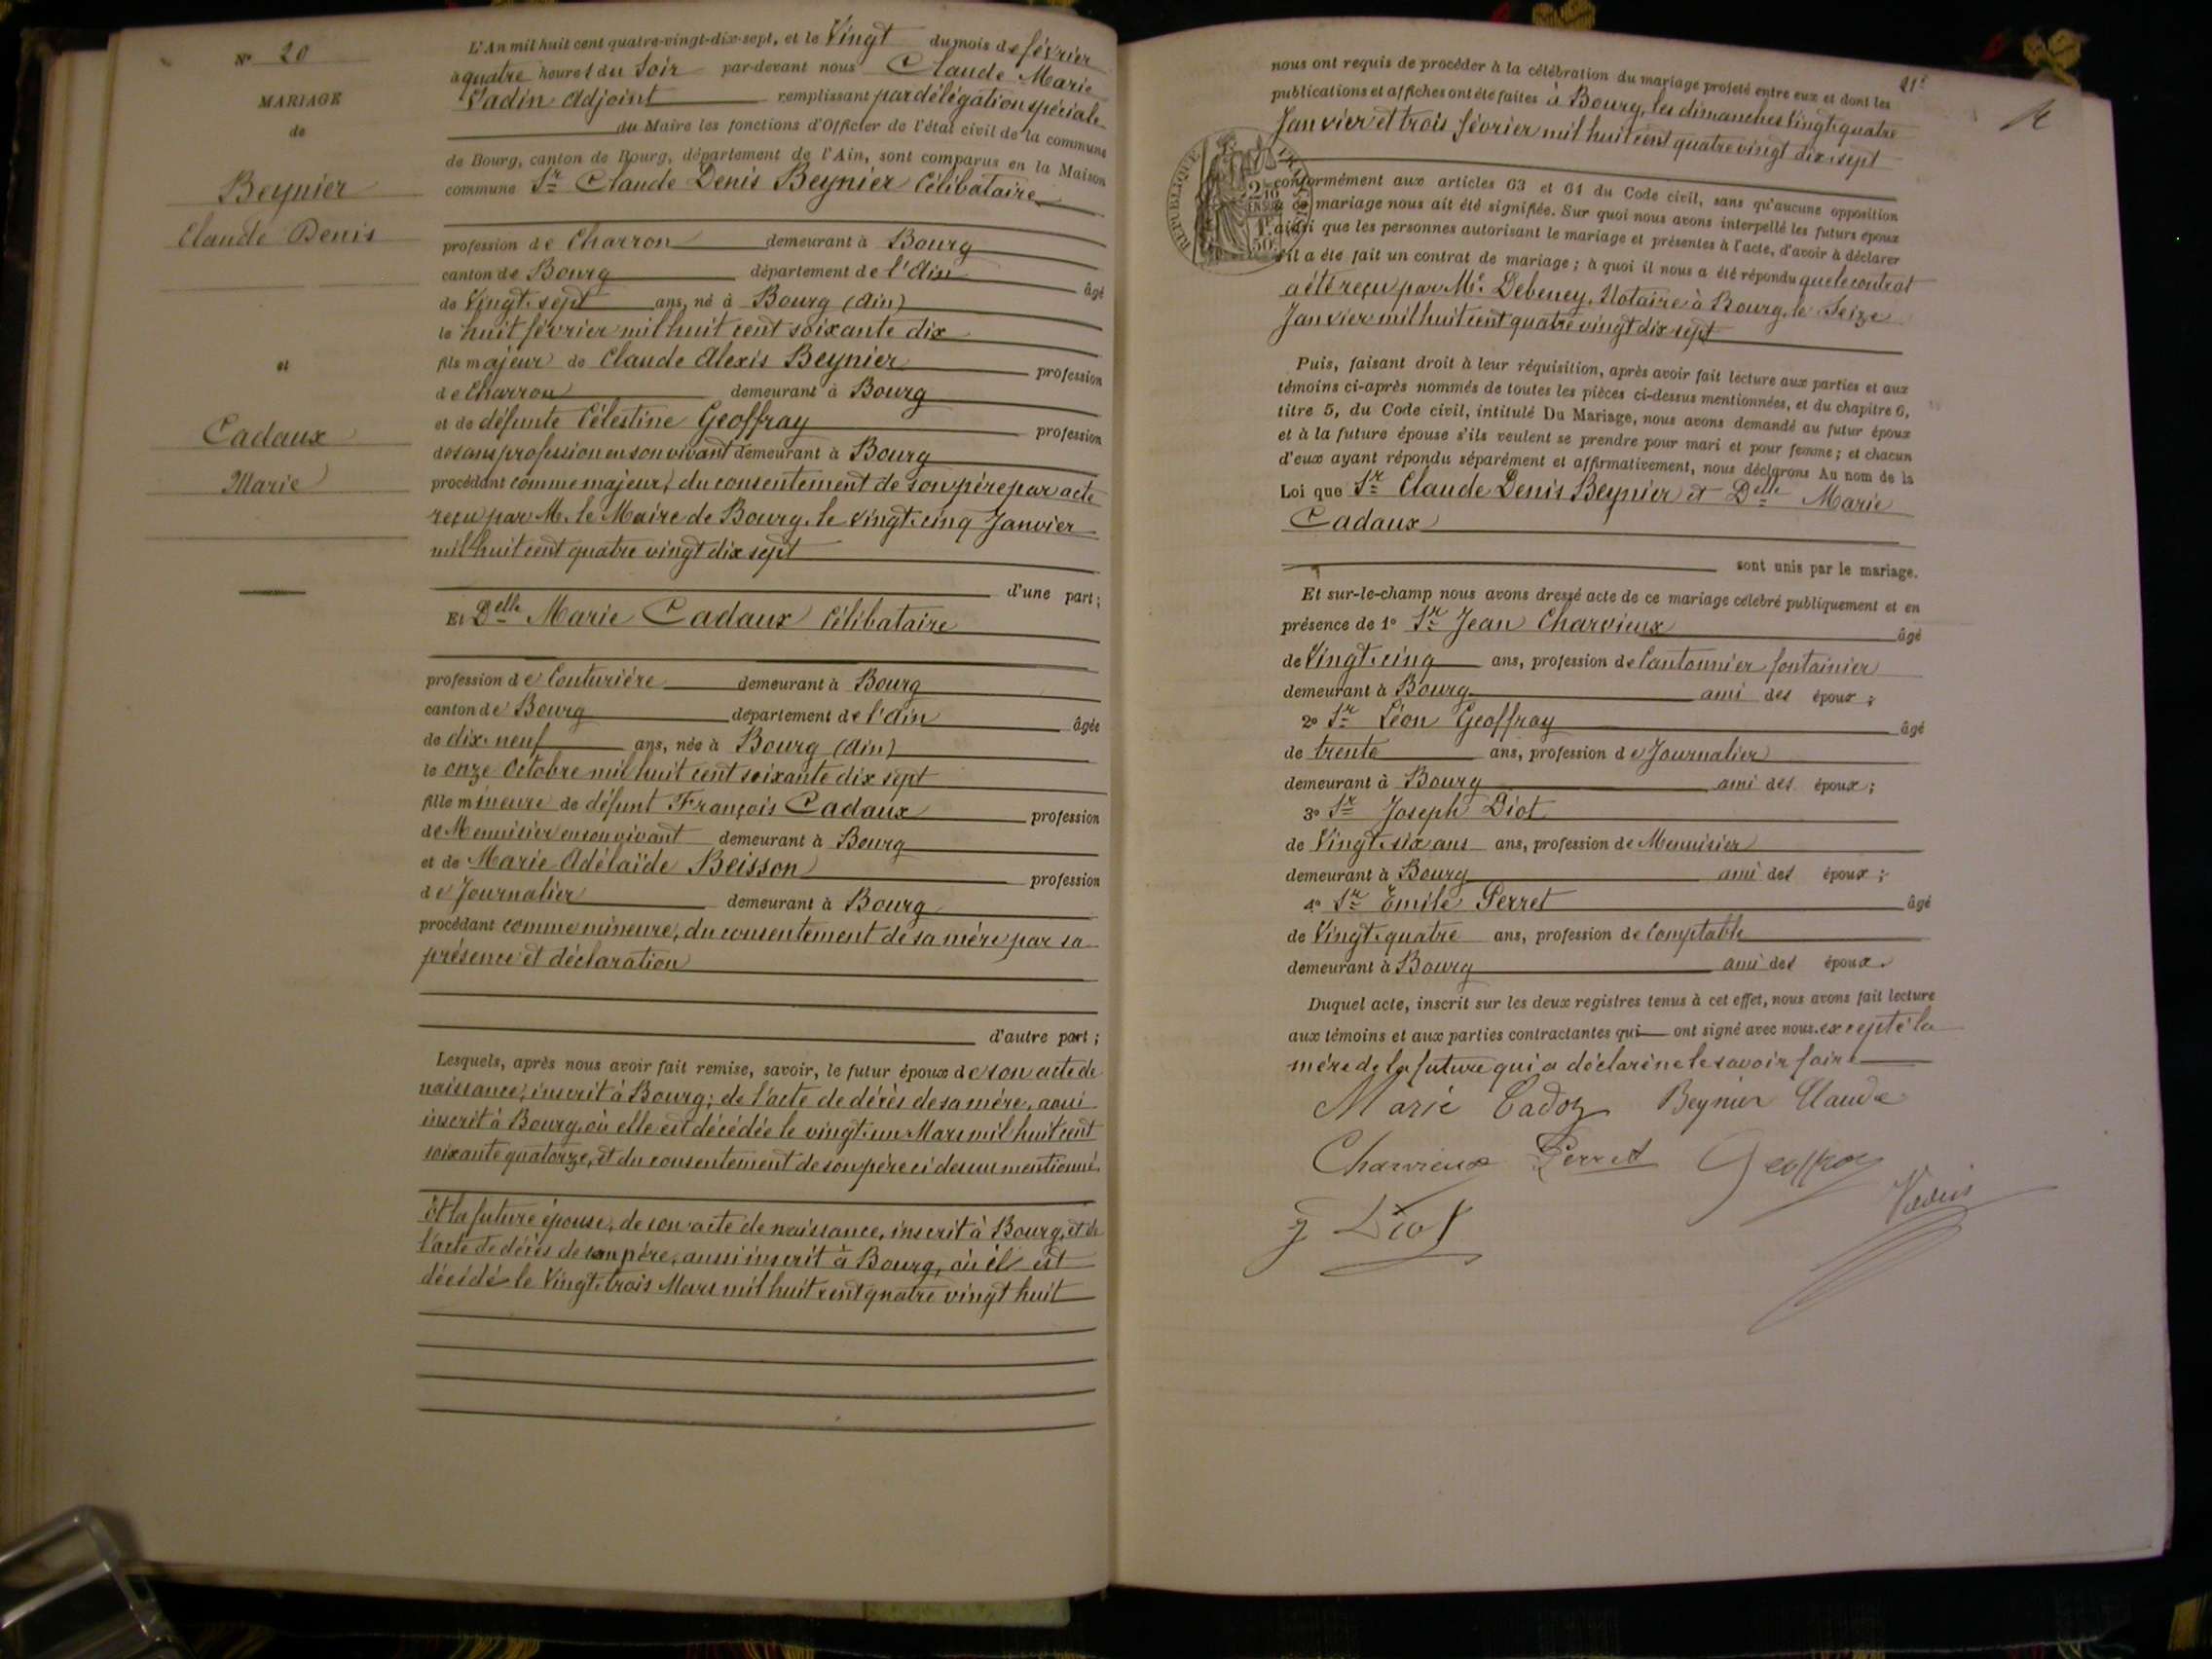 N° 20
MARIAGE
de
Beynier
Claude Denis
et
Cadaux
Marie
L'An mil huit cent quatre-vingt-dix-sept, et le Vingt du mois de février
à quatre heures du Soir par-devant nous Claude Marie
Vadin Adjoint remplissant par délégation spéciale
du Maire les fonctions d'Officier de l'état civil de la commune
de Bourg, canton de Bourg, département de l'Ain, sont comparus en la Maison
commune Sr Claude Denis Beynier Célibataire
profession de Charron demeurant à Bourg
canton de Bourg département de l'Ain âgé
de Vingt-sept ans, né à Bourg (Ain)
le huit février mil huit cent soixante dix
fils majeur de Claude Alexis Beynier profession
de Charron demeurant à Bourg
et de défunte Célestine Geoffray profession
de sans profession en son vivant demeurant à Bourg
procédant comme majeur, du consentement de son père par acte
reçu par M. le Maire de Bourg, le vingt-cinq Janvier
mil huit cent quatre vingt dix sept
d'une part;
Et Delle Marie Cadaux Célibataire
profession de Couturière demeurant à Bourg
canton de Bourg département de l'Ain âgée
de dix-neuf ans, née à Bourg (Ain)
le onze Octobre mil huit cent soixante dix sept
fille mineure de défunt François Cadaux profession
de Menuisier en son vivant demeurant à Bourg
et de Marie Adélaïde Beisson profession
de Journalier demeurant à Bourg
procédant comme mineure, du consentement de sa mère par sa
présence et déclaration
d'autre part;
Lesquels, après nous avoir fait remise, savoir, le futur époux de son acte de
naissance, inscrit à Bourg; de l'acte de décès de sa mère, aussi
inscrit à Bourg, où elle est décédée le vingt-un Mars mil huit cent
soixante quatorze, et du consentement de son père ci dessus mentionné.
Et la future épouse, de son acte de naissance, inscrit à Bourg, et de
l'acte de décès de son père, aussi inscrit à Bourg, où il est
décédé le Vingt-trois Mars mil huit cent quatre vingt huit
21e
nous ont requis de procéder à la célébration du mariage projeté entre eux et dont les
publications et affiches ont été faites à Bourg, les dimanches Vingt-quatre
Janvier et trois février mil huit cent quatre vingt dix sept
conformément aux articles 63 et 64 du Code civil, sans qu'aucune opposition
à ce mariage nous ait été signifiée. Sur quoi nous avons interpellé les futurs époux
ainsi que les personnes autorisant le mariage et présentes à l'acte, d'avoir à déclarer
s'il a été fait un contrat de mariage; à quoi il nous a été répondu que le contrat
a été reçu par Me Debeney, Notaire à Bourg, le Seize
Janvier mil huit cent quatre vingt dix sept
Puis, faisant droit à leur réquisition, après avoir fait lecture aux parties et aux
témoins ci-après nommés de toutes les pièces ci-dessus mentionnées, et du chapitre 6,
titre 5, du Code civil, intitulé Du Mariage, nous avons demandé au futur époux
et à la future épouse s'ils veulent se prendre pour mari et pour femme; et chacun
d'eux ayant répondu séparément et affirmativement, nous déclarons Au nom de la
Loi que Sr Claude Denis Beynier et Delle Marie
Cadaux
sont unis par le mariage.
Et sur-le-champ nous avons dressé acte de ce mariage célébré publiquement et en
présence de 1° Sr Jean Charvieux âgé
de Vingt-cinq ans, profession de Cantonnier fontainier
demeurant à Bourg ami des époux;
2° Sr Léon Geoffray âgé
de trente ans, profession de Journalier
demeurant à Bourg ami des époux;
3° Sr Joseph Diot
de Vingt-six ans ans, profession de Menuisier
demeurant à Bourg ami des époux;
4° Sr Emile Perret âgé
de Vingt-quatre ans, profession de Comptable
demeurant à Bourg ami des époux.
Duquel acte, inscrit sur les deux registres tenus à cet effet, nous avons fait lecture
aux témoins et aux parties contractantes qui ont signé avec nous. excepté la
mère de la future qui a déclaré ne le savoir faire
Marie Cadoz Beynier Claude
Charvieux Perret Geoffray
J Diot Vadin
RÉPUBLIQUE FRANÇAISE
2/10 EN SUS
1F 50C